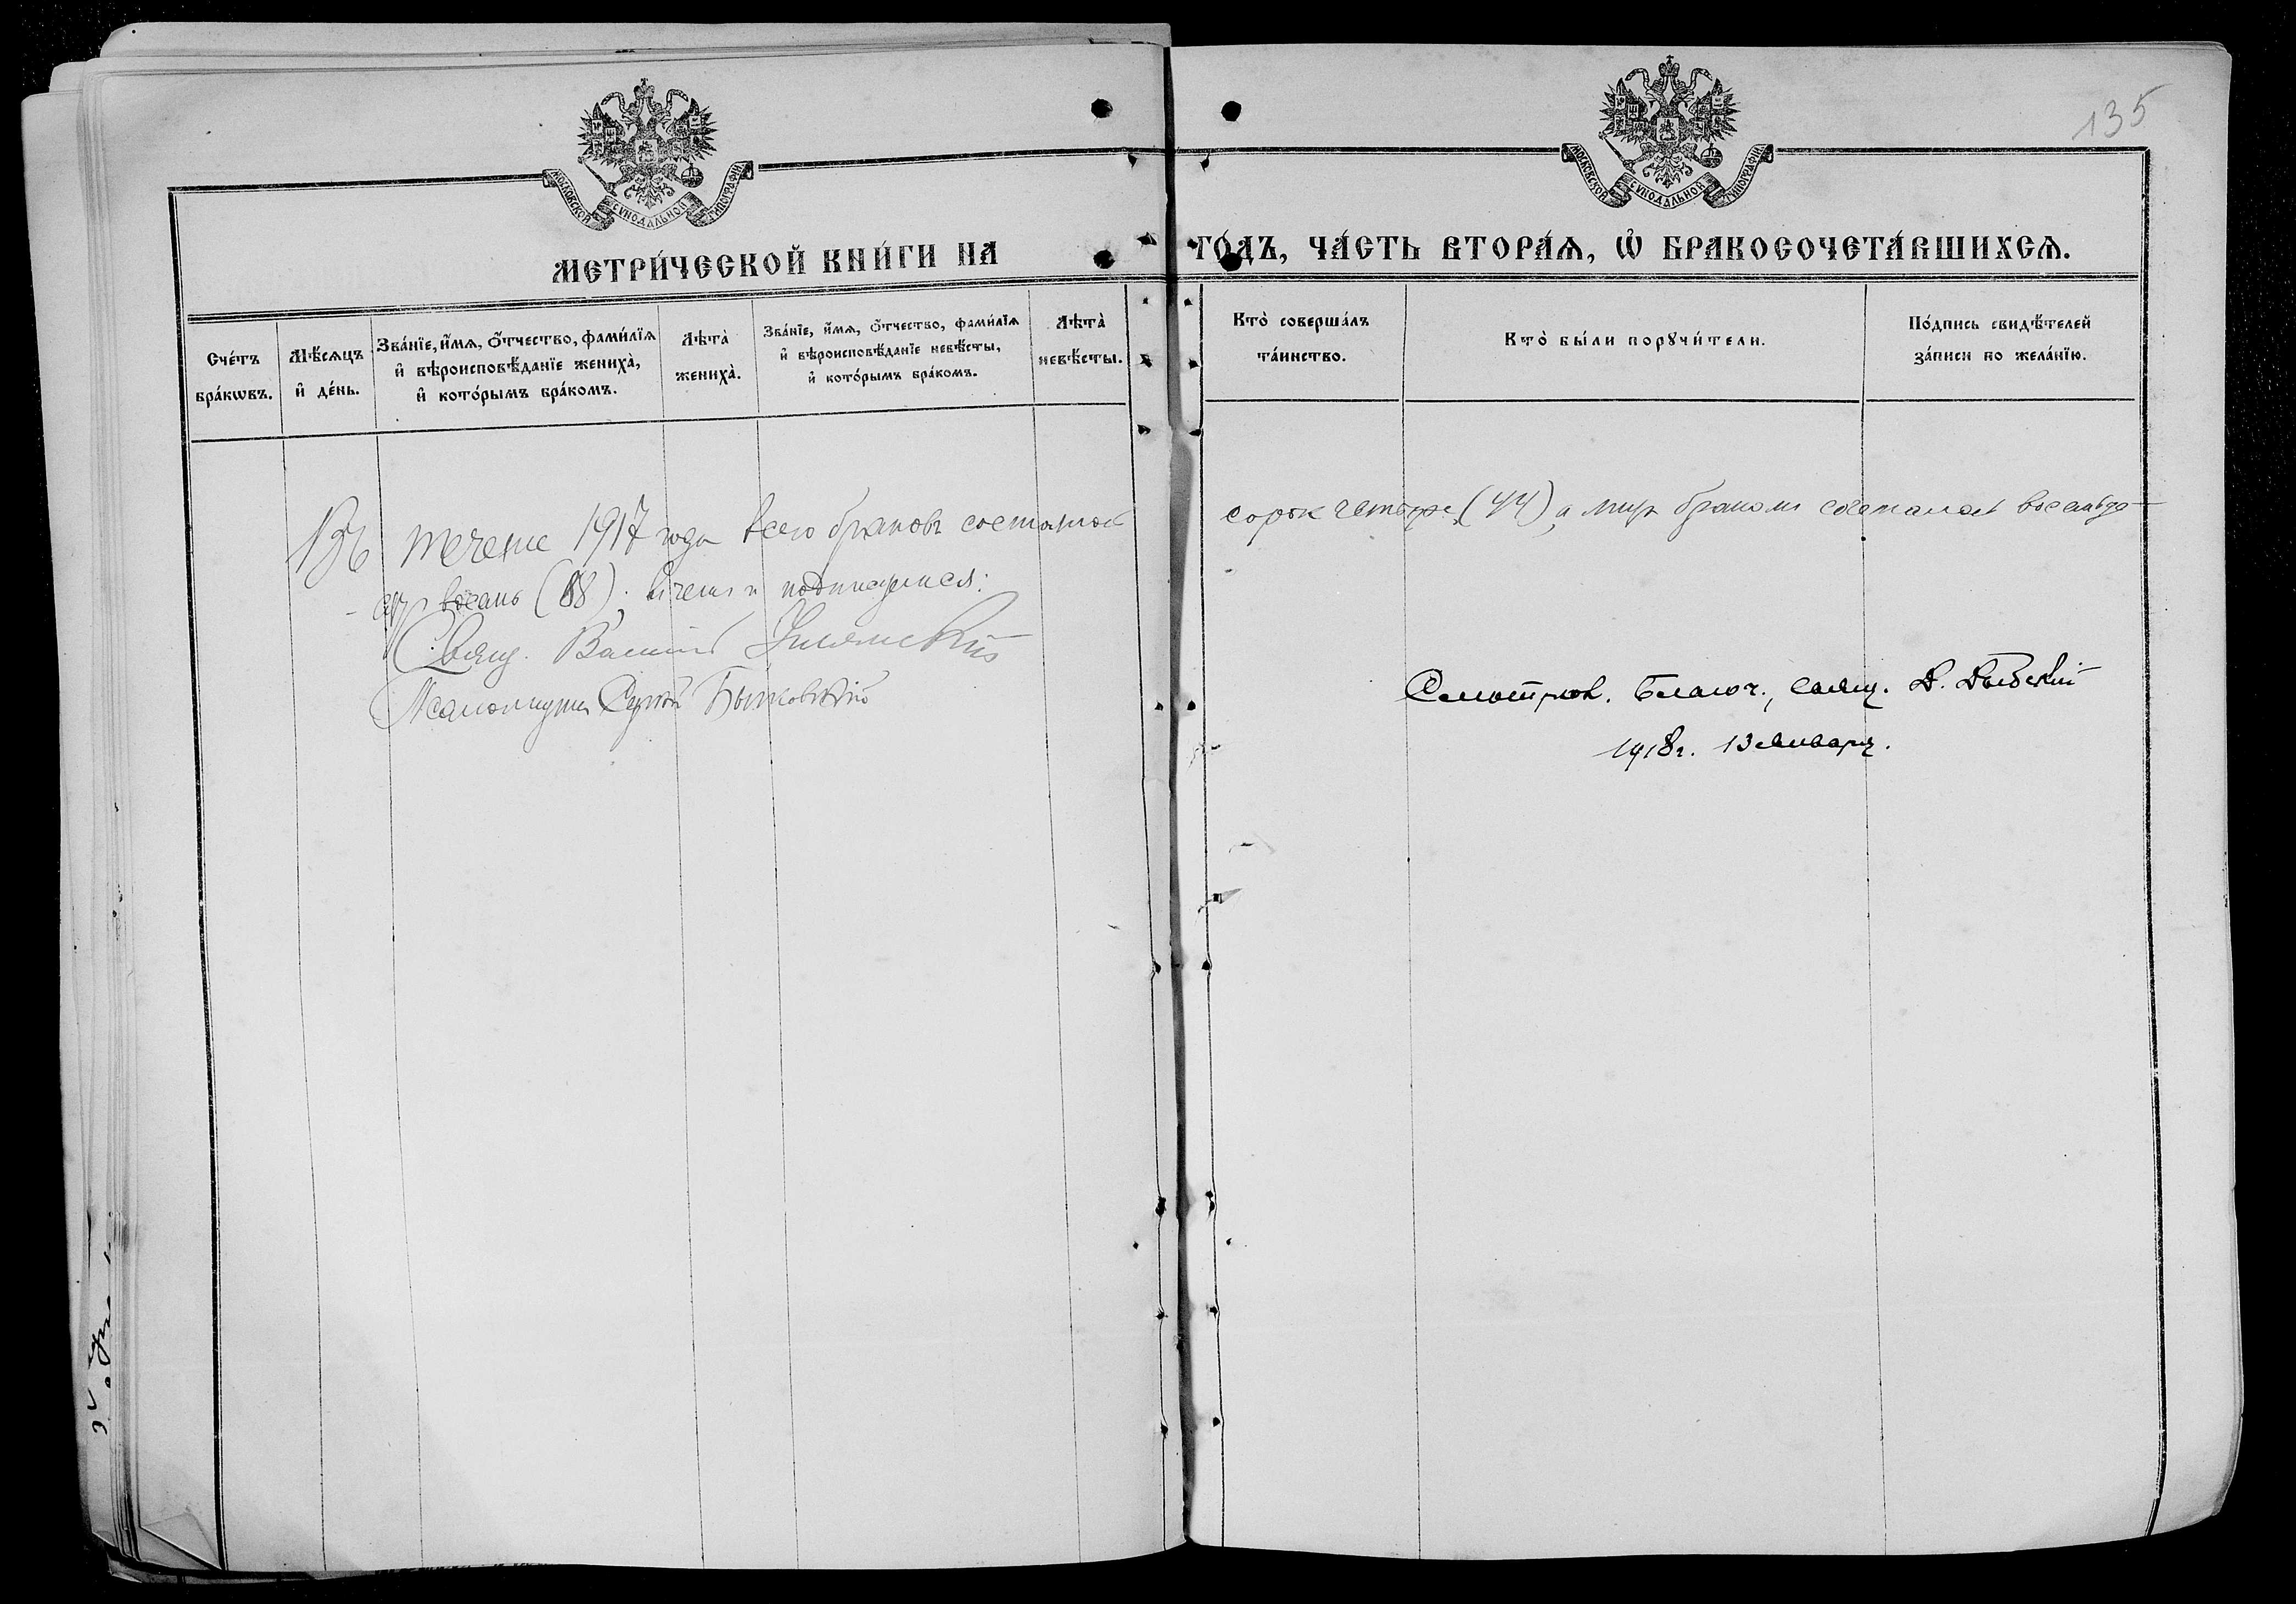 135
МОСКОВСКОЙ СѴНОДАЛЬНОЙ ТИПОГРАФІИ
МОСКОВСКОЙ СѴНОДАЛЬНОЙ ТИПОГРАФІИ
МЕТРИ́ЧЕСКОЙ КНИ́ГИ НА ГО́ДЪ, ЧА́СТЬ ВТОРА́Ѧ, Ѡ҆ БРАКОСОЧЕТА́ВШИХСѦ.
Сче́тъ бра́кѡвъ.
Мѣ́сѧцъ и҆ де́нь.
Зва́нїе, и҆́мѧ, ѻ҆́тчество, фами́лїѧ и҆ вѣроисповѣ́данїе жениха̀, и҆ кото́рымъ бра́комъ.
Лѣта̀ жениха̀.
Зва́нїе, и҆́мѧ, ѻ҆́тчество, фами́лїѧ и҆ вѣроисповѣ́данїе невѣ́сты, и҆ кото́рымъ бра́комъ.
Лѣта̀ невѣ́сты.
Кто̀ соверша́лъ та́инство.
Кто̀ бы́ли порꙋчи́тели.
По́дпись свидѣ́телей за́писи по жела́нїю.
Въ течение 1917 года всего браковъ состоялось сорок четыре (44), а лиц браком сочеталось восемьде-
сят восемь (88); в чем и подписуемся:
Свящ. Василий
Псаломщик Быковский
Смотрел. Благоч., свящ. Д.
1918 г. 13 января.